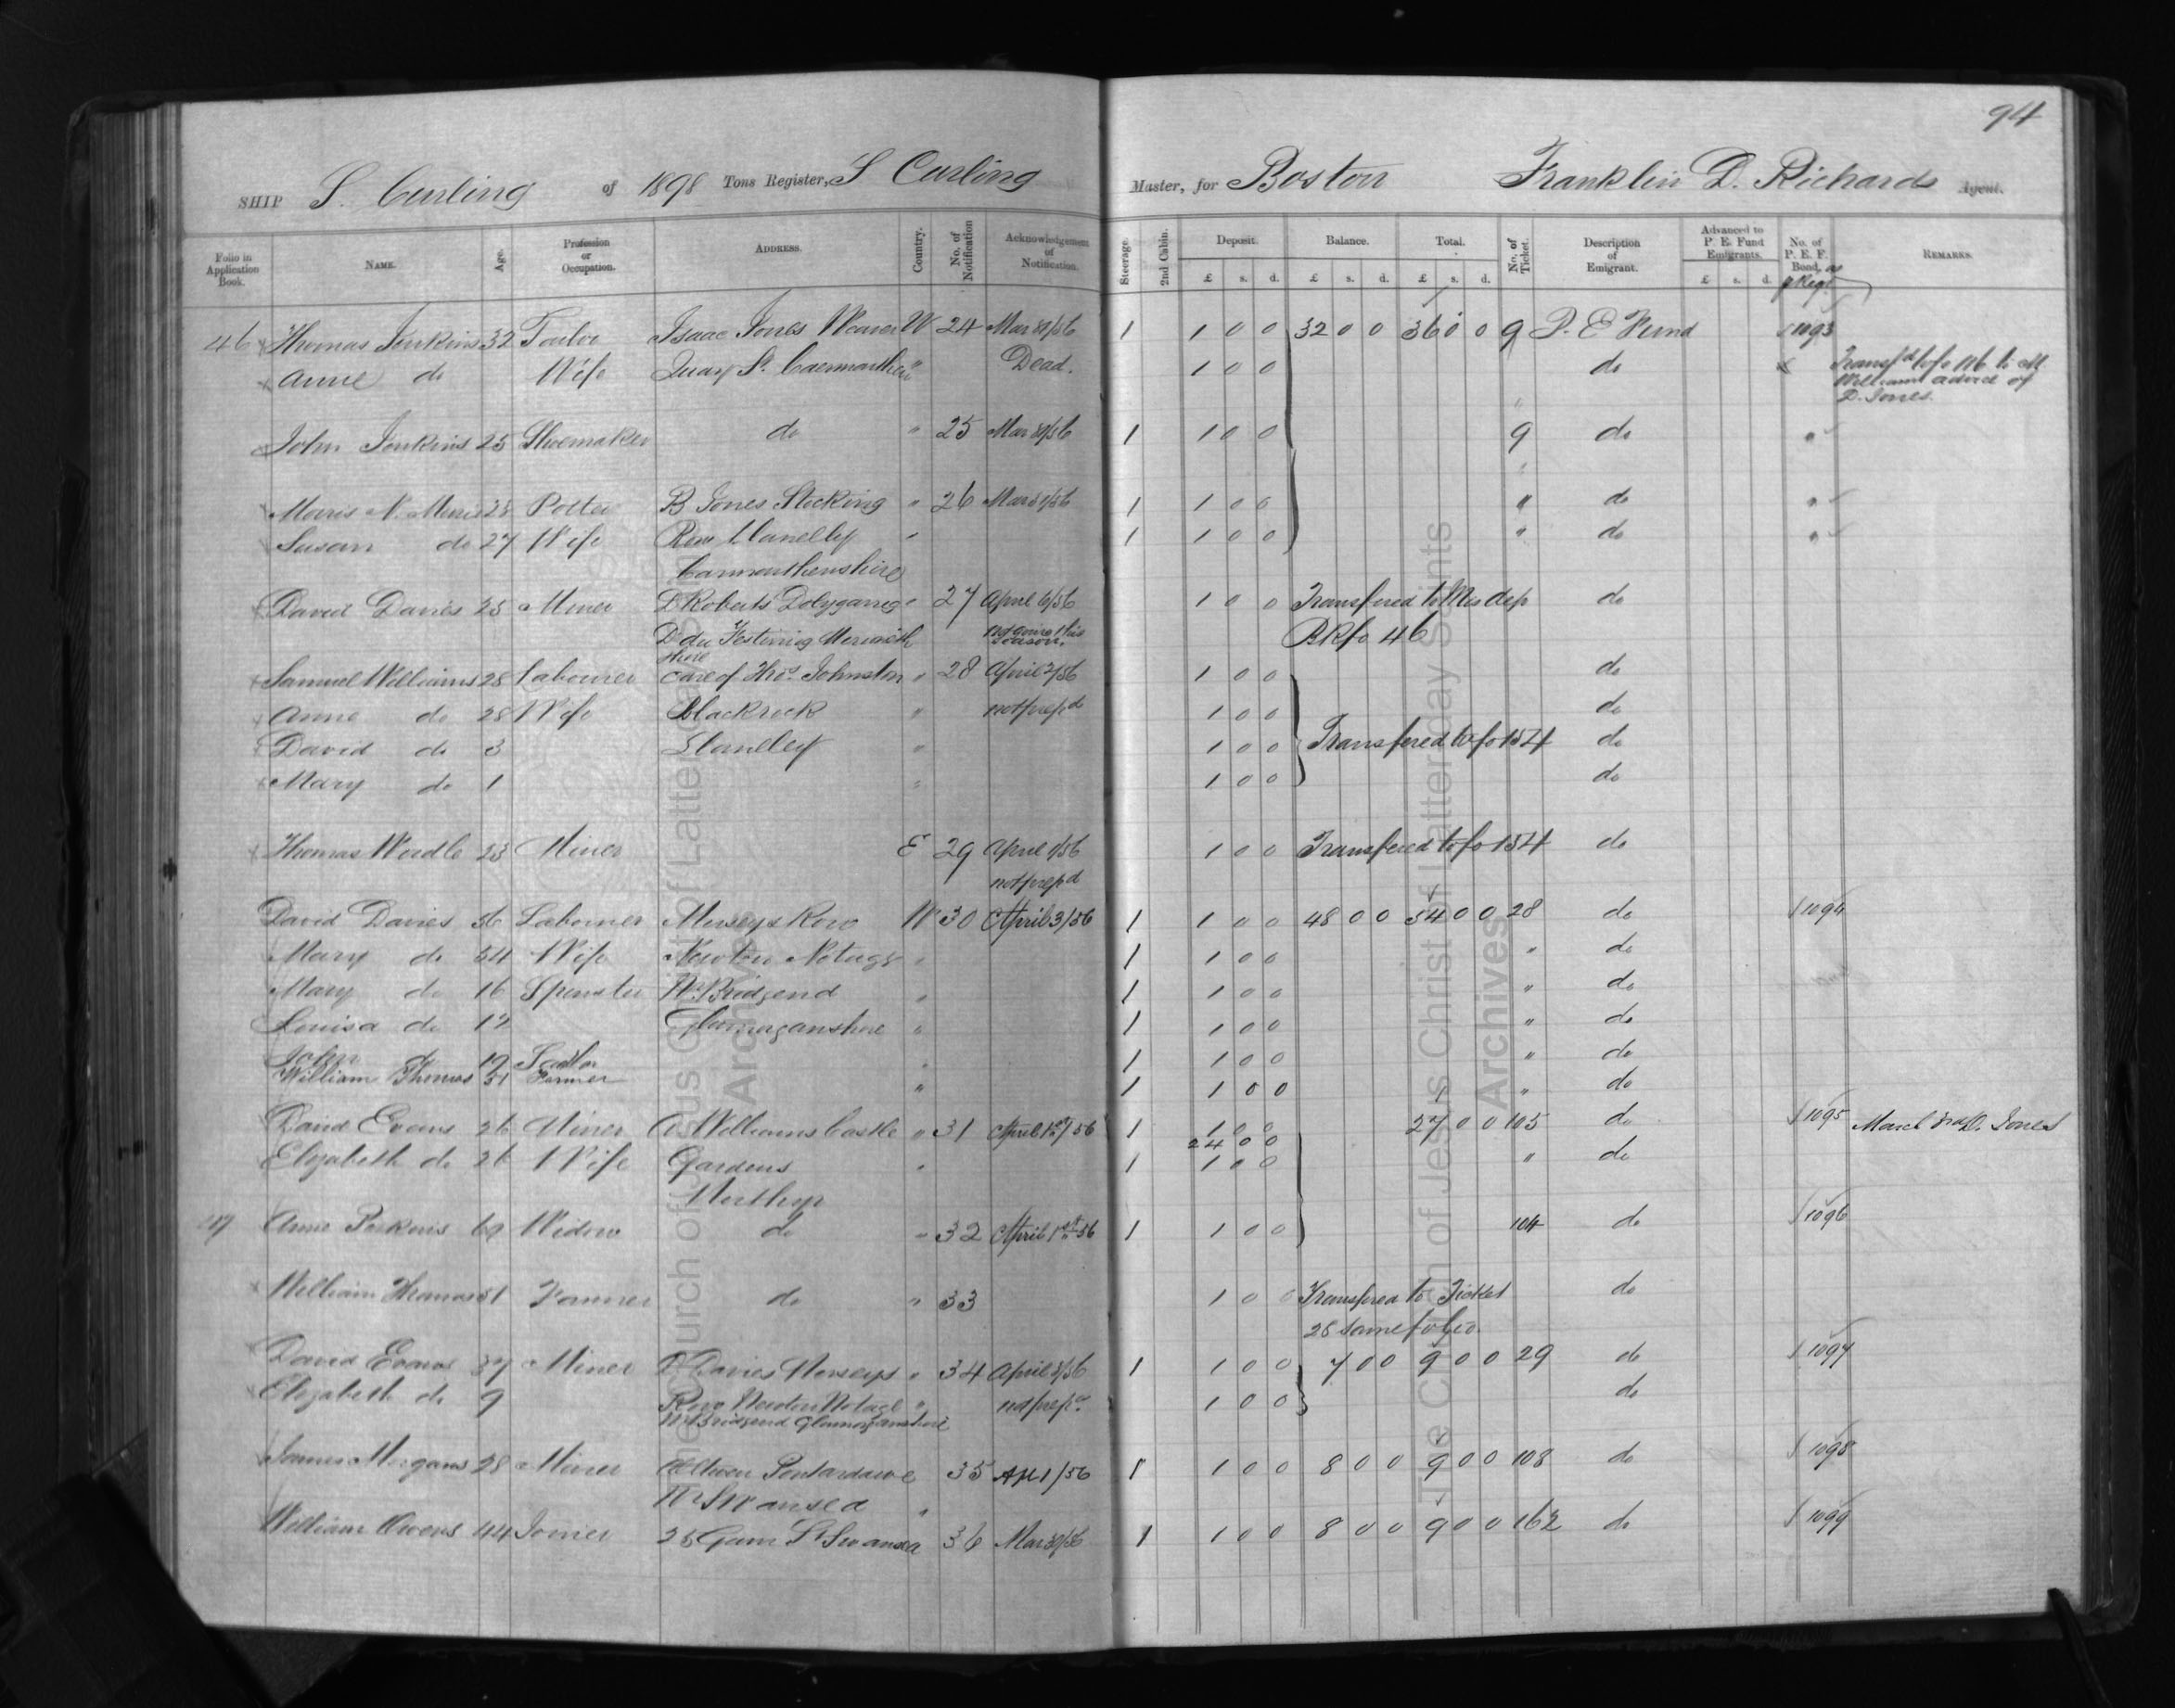 94
SHIP S. Curling of 1898 Tons Register, S Curling Master, for Boston Franklin D. Richards Agent.
Folio in Application Book. NAME. Age. Profession or Occupation. ADDRESS. Country. No. of Notification Acknowledgement of Notification. Steerage. 2nd Cabin. Deposit. Balance. Total. No. of Ticket. Description of Emigrant. Advanced to P. E. Fund Emigrants. No. of P. E. F. Bond, REMARKS.
£ s. d. £ s. d. £ s. d. £ s. d.
46 Thomas Jenkins 32 Tailor Isaac Jones Weaver W 24 Mar 31/56 1 1 0 0 32 0 0 36 0 0 9 P. E Fund 1093
Anne do Wife Quay St. Caermarthen " Dead. 1 0 0 do Transfd to fo 116 to M
William advice of
D. Jones.
John Jenkins 25 Shoemaker do " 25 Mar 31/56 1 1 0 0 9 do "
Morris N. 28 Potter B Jones Stocking " 26 Mar 31/56 1 1 0 0 " do "
Susan do 27 Wife Row Llanelly " 1 1 0 0 " do "
Carmarthenshire
David Davies 25 Miner D Roberts " 27 April 6/56 1 0 0 Transfered to Mis dep do
Festiniog Merioneth not going this season. Bk fo 46
shire
Samuel Williams 28 Labourer care of Thos. Johnston " 28 April 2/56 1 0 0 do
Anne do 28 Wife Blackrock " not prepd 1 0 0 do
David do 3 Llanelley " 1 0 0 Transfered to fo 154 do
Mary do 1 " 1 0 0 do
Thomas 23 Miner E 29 April 1/56 1 0 0 Transfered to fo 154 do
not prepd
David Davies 56 Labourer Row W 30 April 3/56 1 1 0 0 48 0 0 54 0 0 28 do 1094
Mary do 54 Wife Newton Notage " 1 1 0 0 " do
Mary do 16 Spinster Nr. Bridgend " 1 1 0 0 " do
Louisa do 12 Glamorganshire " 1 1 0 0 " do
John do 19 " 1 1 0 0 " do
William Thomas 51 Farmer " 1 1 0 0 " do
David Evans 26 Miner Williams Castle " 31 April 1st/56 1 1 0 0 27 0 0 105 do 1095 March D. Jones
24 0 0
Elizabeth do 26 Wife Gardens " 1 1 0 0 " do
Merthyr
47 Anne Perkins 69 Widow do " 32 April 1st 56 1 1 0 0 104 do 1096
William Thomas 51 Farmer do " 33 1 0 0 Transfered to Ticket do
28 same folio.
David Evans 37 Miner D Davies " 34 April 3/56 1 1 0 0 7 0 0 9 0 0 29 do 1097
Elizabeth do 9 Row Newton Notage " not prepd. 1 0 0 do
Nr Bridgend Glamorganshire
James Morgans 28 Miner Pontardawe 35 Apl 1/56 1 1 0 0 8 0 0 9 0 0 108 do 1098
Nr Swansea "
William Owens 44 Joiner 25 St Swansea 36 Mar 31/56 1 1 0 0 8 0 0 9 0 0 162 do 1099
The Church of Jesus Christ of Latter-day Saints
Archives
The Church of Jesus Christ of Latter-day Saints
Archives